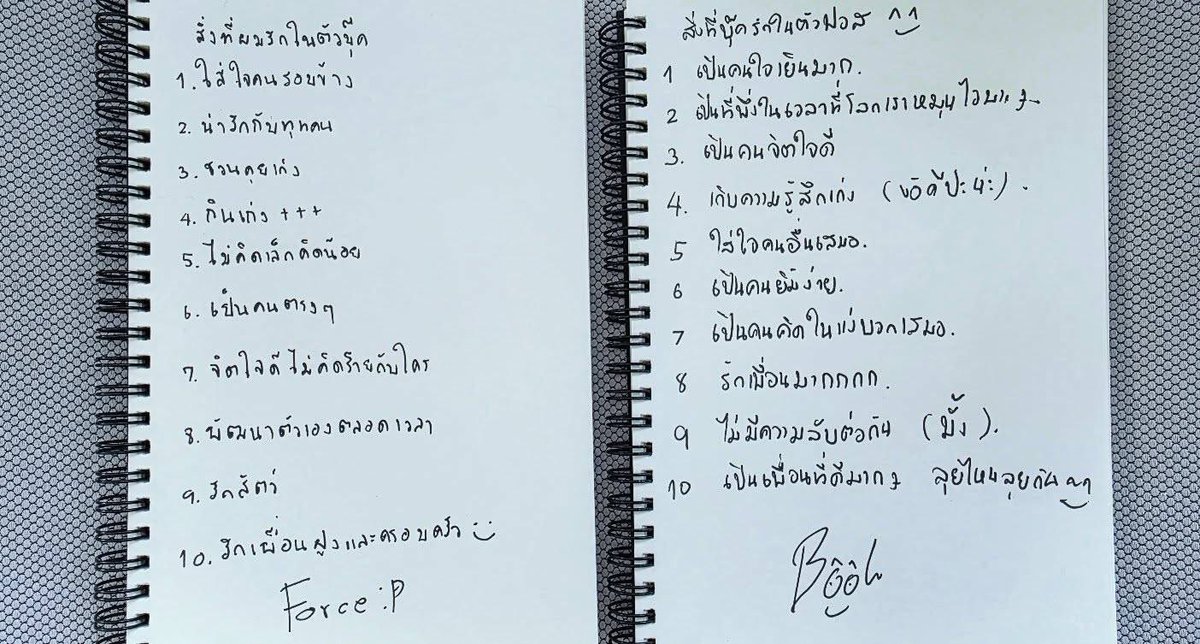 สิ่งที่ผมรักในตัวบุ๊ค
1. ใส่ใจคนรอบข้าง
2. น่ารักกับทุกคน
3. ชวนคุยเก่ง
4. กินเก่ง +++
5. ไม่คิดเล็กคิดน้อย
6. เป็นคนตรงๆ
7. จิตใจดี ไม่คิดร้ายกับใคร
8. พัฒนาตัวเองตลอดเวลา
9. รักสัตว์
10. รักเพื่อนฝูงและครอบครัว
Force :P
สิ่งที่บุ๊ครักในตัวฟอส ^^
1 เป็นคนใจเย็นมาก.
2 เป็นที่พึ่งในเวลาที่โลกเราหมุนไวมากๆ
3. เป็นคนจิตใจดี
4. เก็บความรู้สึกเก่ง (ข้อดีปะน่ะ).
5 ใส่ใจคนอื่นเสมอ.
6 เป็นคนยิ้มง่าย.
7 เป็นคนคิดในแง่บวกเสมอ.
8 รักเพื่อนมากกกก.
9 ไม่มีความลับต่อกัน (มั้ง).
10 เป็นเพื่อนที่ดีมากๆ ลุยไหนลุยกัน ^^
Book